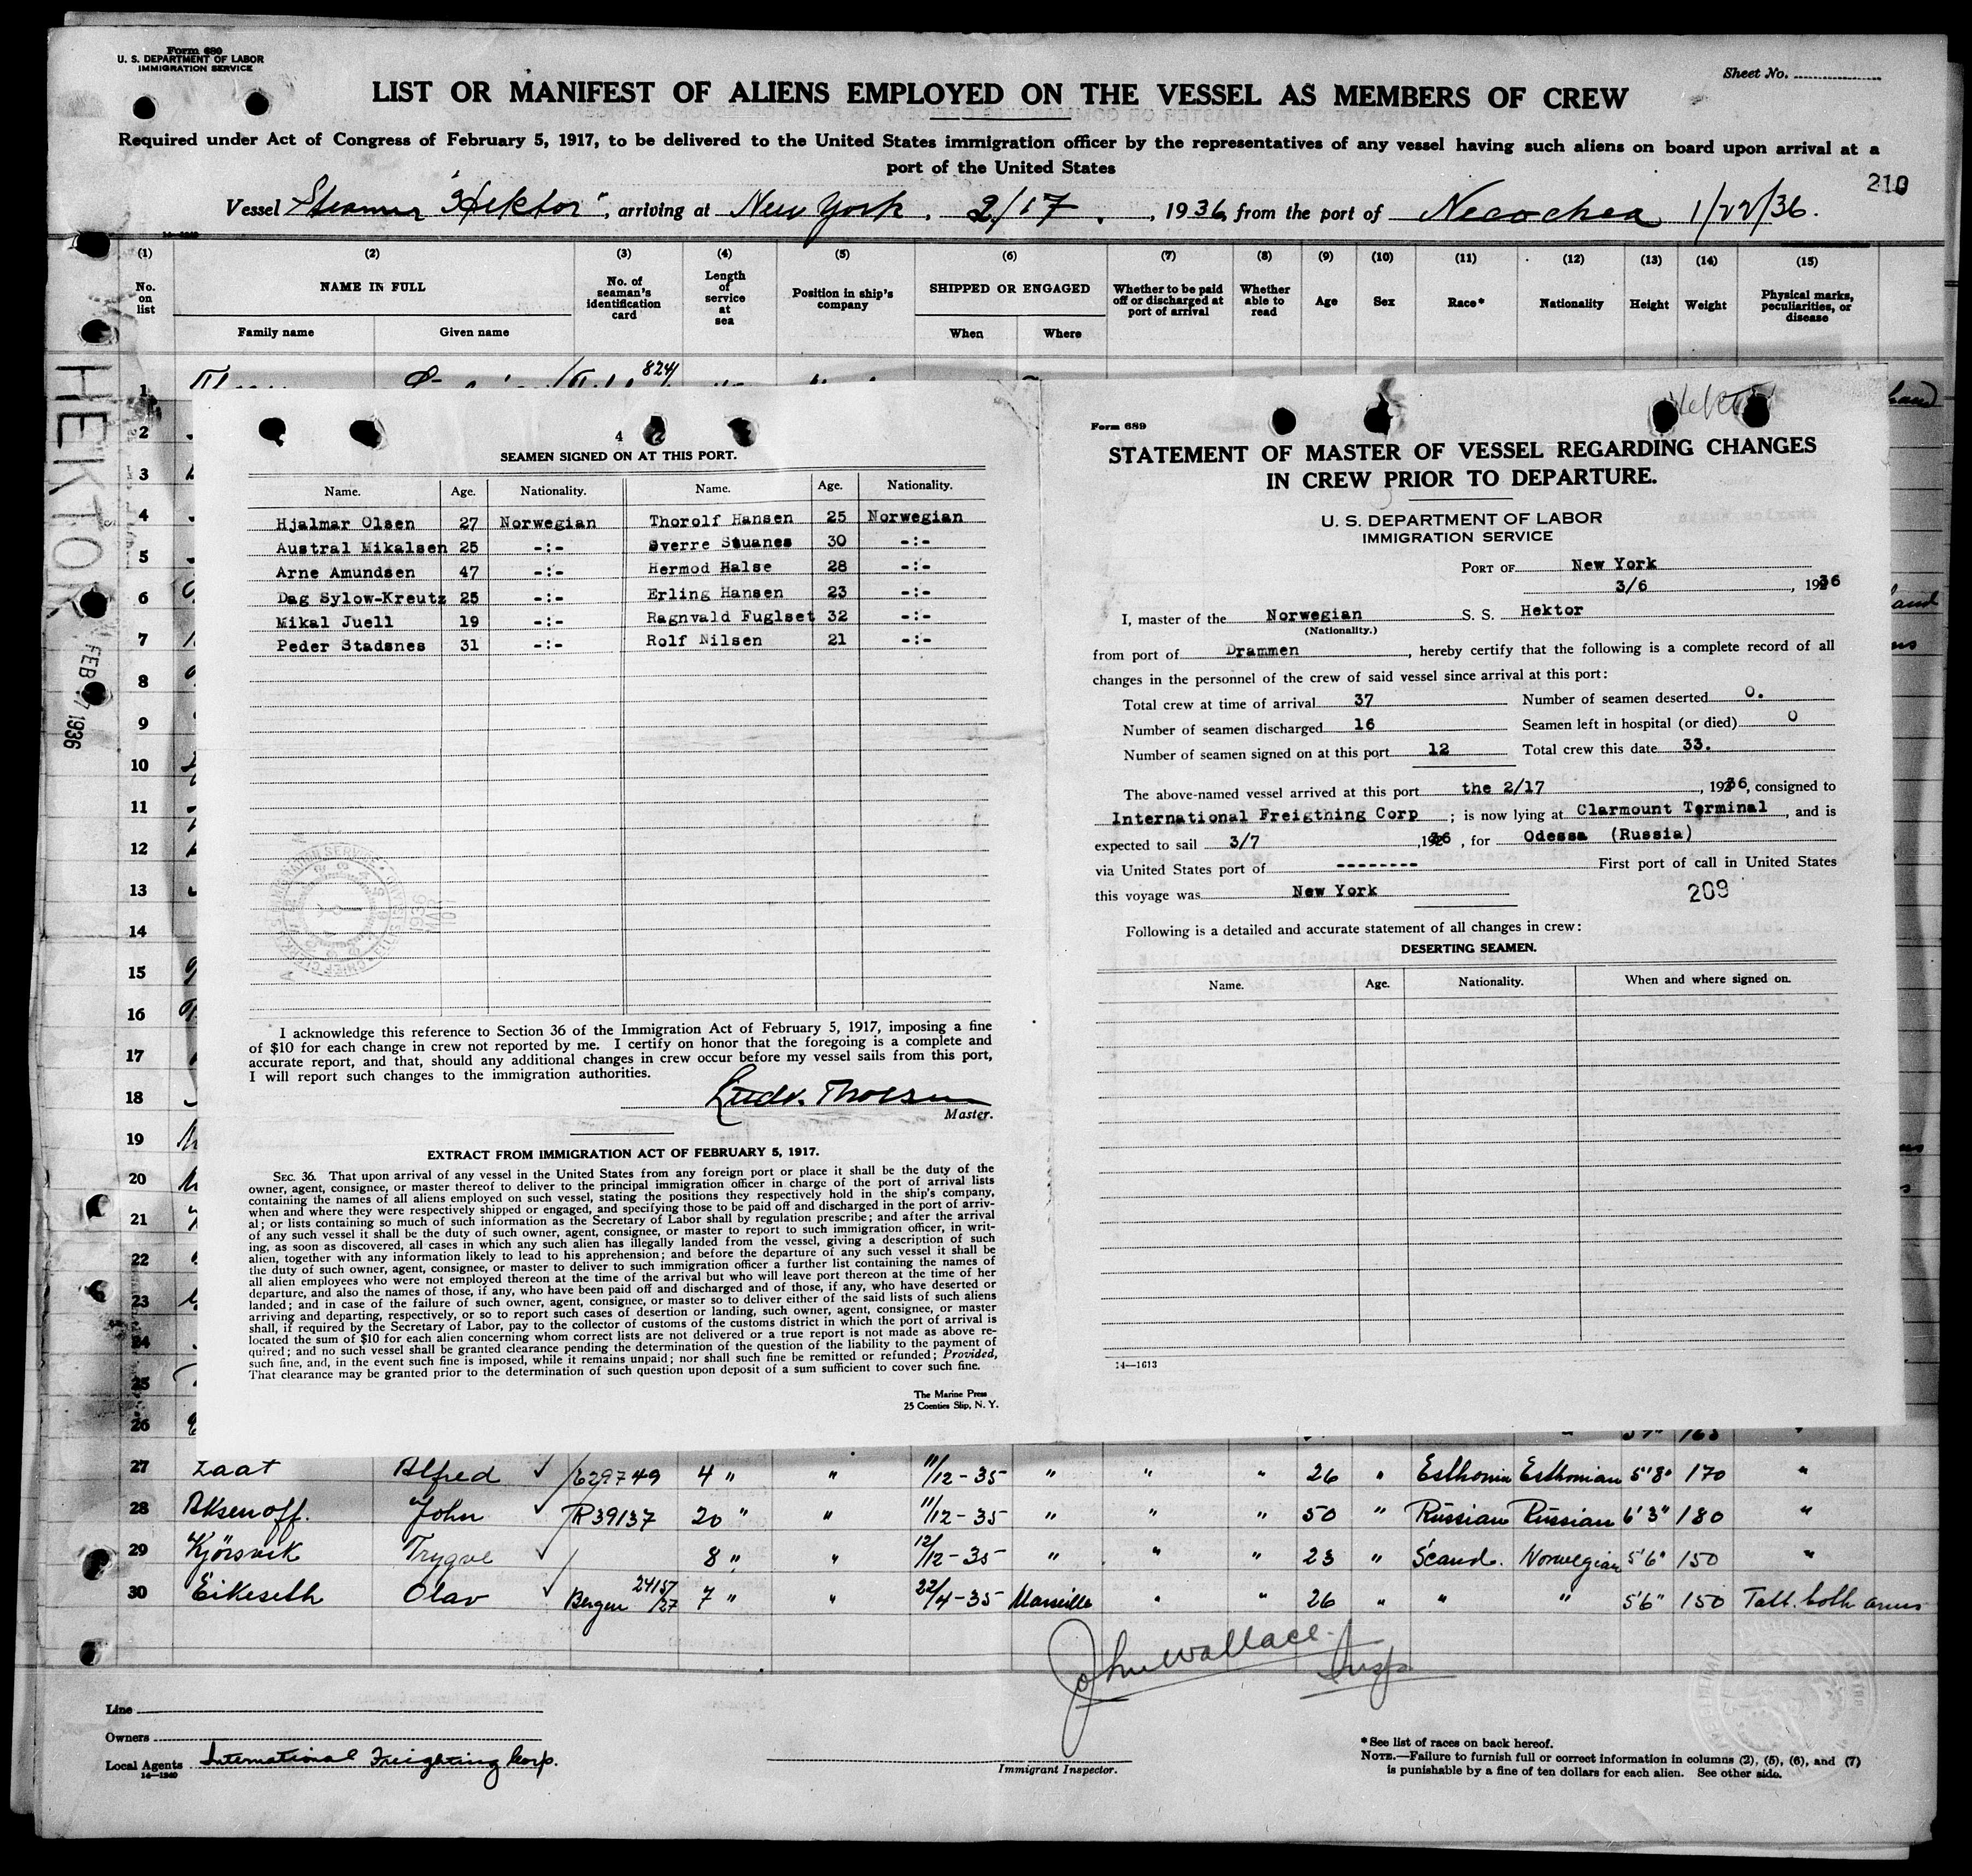 Form 689
U. S. DEPARTMENT OF LABOR
IMMIGRATION SERVICE
Sheet No.
LIST OR MANIFEST OF ALIENS EMPLOYED ON THE VESSEL AS MEMBERS OF CREW
Required under Act of Congress of February 5, 1917, to be delivered to the United States immigration officer by the representatives of any vessel having such aliens on board upon arrival at a
port of the United States
210
Vessel Steamer "Hektor", arriving at New York, 2/17, 1936, from the port of Necochea 1/22/36.
(1) (2) (3) (4) (5) (6) (7) (8) (9) (10) (11) (12) (13) (14) (15)
No. on list
NAME IN FULL
Family name Given name
No. of seaman's identification card
Length of service at sea
Position in ship's company
SHIPPED OR ENGAGED
When Where
Whether to be paid off or discharged at port of arrival
Whether able to read
Age
Sex
Race*
Nationality
Height
Weight
Physical marks, peculiarities, or disease
HEKTOR
FEB 17 1936
1 8241
2
3
4
5
6
7
8
9
10
11
12
13
14
15
16
17
18
19
20
21
22
23
24
25
26
4
SEAMEN SIGNED ON AT THIS PORT.
Name. Age. Nationality. Name. Age. Nationality.
Hjalmar Olsen 27 Norwegian Thorolf Hansen 25 Norwegian
Austral Mikalsen 25 -:- Sverre Stuanes 30 -:-
Arne Amundsen 47 -:- Hermod Halse 28 -:-
Dag Sylow-Kreutz 25 -:- Erling Hansen 23 -:-
Mikal Juell 19 -:- Ragnvald Fuglset 32 -:-
Peder Stadsnes 31 -:- Rolf Nilsen 21 -:-
I acknowledge this reference to Section 36 of the Immigration Act of February 5, 1917, imposing a fine
of $10 for each change in crew not reported by me. I certify on honor that the foregoing is a complete and
accurate report, and that, should any additional changes in crew occur before my vessel sails from this port,
I will report such changes to the immigration authorities.
Ludv. Thoesen
Master.
EXTRACT FROM IMMIGRATION ACT OF FEBRUARY 5, 1917.
SEC. 36. That upon arrival of any vessel in the United States from any foreign port or place it shall be the duty of the
owner, agent, consignee, or master thereof to deliver to the principal immigration officer in charge of the port of arrival lists
containing the names of all aliens employed on such vessel, stating the positions they respectively hold in the ship's company,
when and where they were respectively shipped or engaged, and specifying those to be paid off and discharged in the port of arriv-
al; or lists containing so much of such information as the Secretary of Labor shall by regulation prescribe; and after the arrival
of any such vessel it shall be the duty of such owner, agent, consignee, or master to report to such immigration officer, in writ-
ing, as soon as discovered, all cases in which any such alien has illegally landed from the vessel, giving a description of such
alien, together with any information likely to lead to his apprehension; and before the departure of any such vessel it shall be
the duty of such owner, agent, consignee, or master to deliver to such immigration officer a further list containing the names of
all alien employees who were not employed thereon at the time of the arrival but who will leave port thereon at the time of her
departure, and also the names of those, if any, who have been paid off and discharged and of those, if any, who have deserted or
landed; and in case of the failure of such owner, agent, consignee, or master so to deliver either of the said lists of such aliens
arriving and departing, respectively, or so to report such cases of desertion or landing, such owner, agent, consignee, or master
shall, if required by the Secretary of Labor, pay to the collector of customs of the customs district in which the port of arrival is
located the sum of $10 for each alien concerning whom correct lists are not delivered or a true report is not made as above re-
quired; and no such vessel shall be granted clearance pending the determination of the question of the liability to the payment of
such fine, and, in the event such fine is imposed, while it remains unpaid; nor shall such fine be remitted or refunded; Provided,
That clearance may be granted prior to the determination of such question upon deposit of a sum sufficient to cover such fine.
The Marine Press
25 Coenties Slip, N. Y.
Hektor
Form 689
STATEMENT OF MASTER OF VESSEL REGARDING CHANGES
IN CREW PRIOR TO DEPARTURE.
U. S. DEPARTMENT OF LABOR
IMMIGRATION SERVICE
PORT OF New York
3/6, 1936
I, master of the Norwegian S. S. Hektor
(Nationality.)
from port of Drammen, hereby certify that the following is a complete record of all
changes in the personnel of the crew of said vessel since arrival at this port:
Total crew at time of arrival 37 Number of seamen deserted 0.
Number of seamen discharged 16 Seamen left in hospital (or died) 0
Number of seamen signed on at this port 12 Total crew this date 33.
The above-named vessel arrived at this port the 2/17, 1936, consigned to
International Freigthing Corp; is now lying at Clarmount Terminal, and is
expected to sail 3/7, 1936, for Odessa (Russia)
via United States port of -------- First port of call in United States
this voyage was New York
209
Following is a detailed and accurate statement of all changes in crew:
DESERTING SEAMEN.
Name. Age. Nationality. When and where signed on.
14—1613
27 Laat Alfred ✓ 629749 4 " " 11/12-35 " " " 26 " Esthonia Esthonian 5'8" 170 "
28 Aksenoff. John ✓ R39137 20 " " 11/12-35 " " " 50 " Russian Russian 6'3" 180 "
29 Kjörsvik Trygve ✓ 8 " " 12/12-35 " " " 23 " Scand. Norwegian 5'6" 150 "
30 Eikeseth Olav ✓ Bergen 24157/27 7 " " 22/4-35 Marseille " " 26 " " " 5'6" 150 Tatt. both arms
John Wallace
Insp
Line
Owners
Local Agents International Freighting Corp.
14—1240
Immigrant Inspector.
*See list of races on back hereof.
NOTE.—Failure to furnish full or correct information in columns (2), (5), (6), and (7)
is punishable by a fine of ten dollars for each alien. See other side.